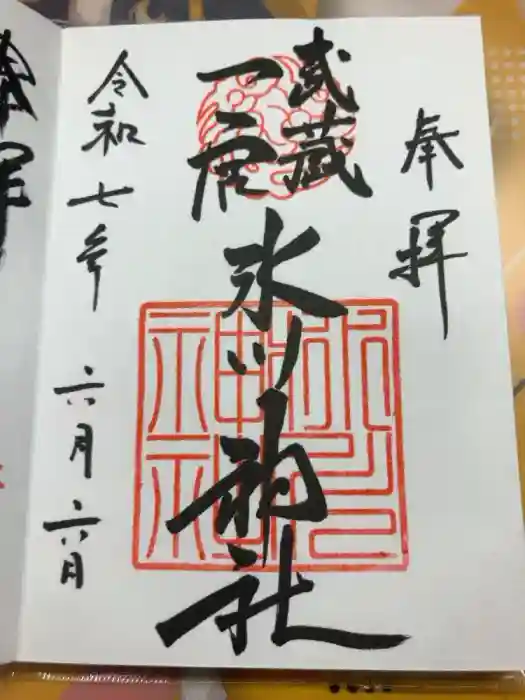 奉拝
武蔵
一宮
氷川神社
令和七年 六月六日
氷川
神社